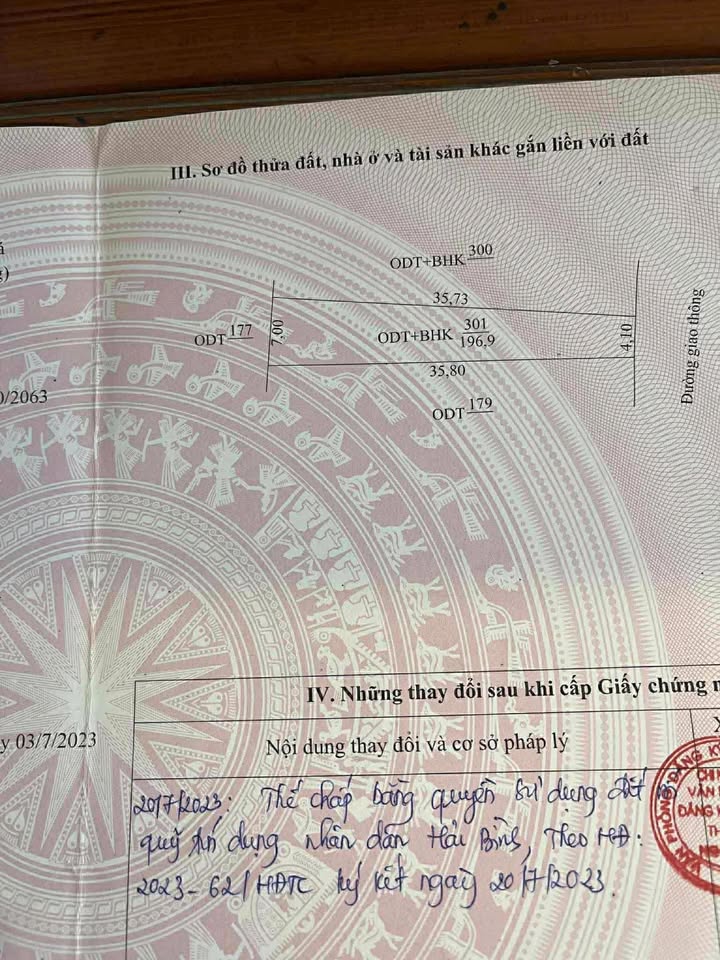 III. Sơ đồ thửa đất, nhà ở và tài sản khác gắn liền với đất
ODT+BHK 300
35,73
ODT 177
7,00
ODT+BHK 301
196,9
4,10
Đường giao thông
35,80
ODT 179
0/2063
IV. Những thay đổi sau khi cấp Giấy chứng
y 03/7/2023
Nội dung thay đổi và cơ sở pháp lý
20/7/2023: Thế chấp bằng quyền sử dụng đất
quỹ tín dụng nhân dân Hải Bình, Theo HĐ:
2023-62/HĐTC ký kết ngày 20/7/2023.
VĂN PHÒNG ĐĂNG K
CHI
VĂN
ĐĂNG